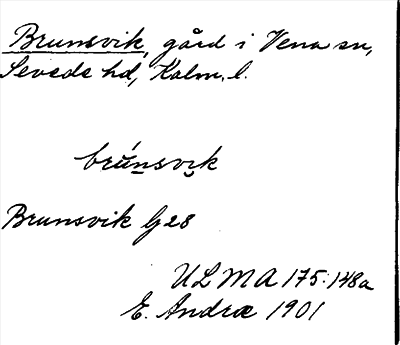 Brunsvik, gård i Vena sn,
Sevede hd, Kalm. l.
brúnsvik
Brunsvik G28
ULMA 175:148a
E. Andræ 1901